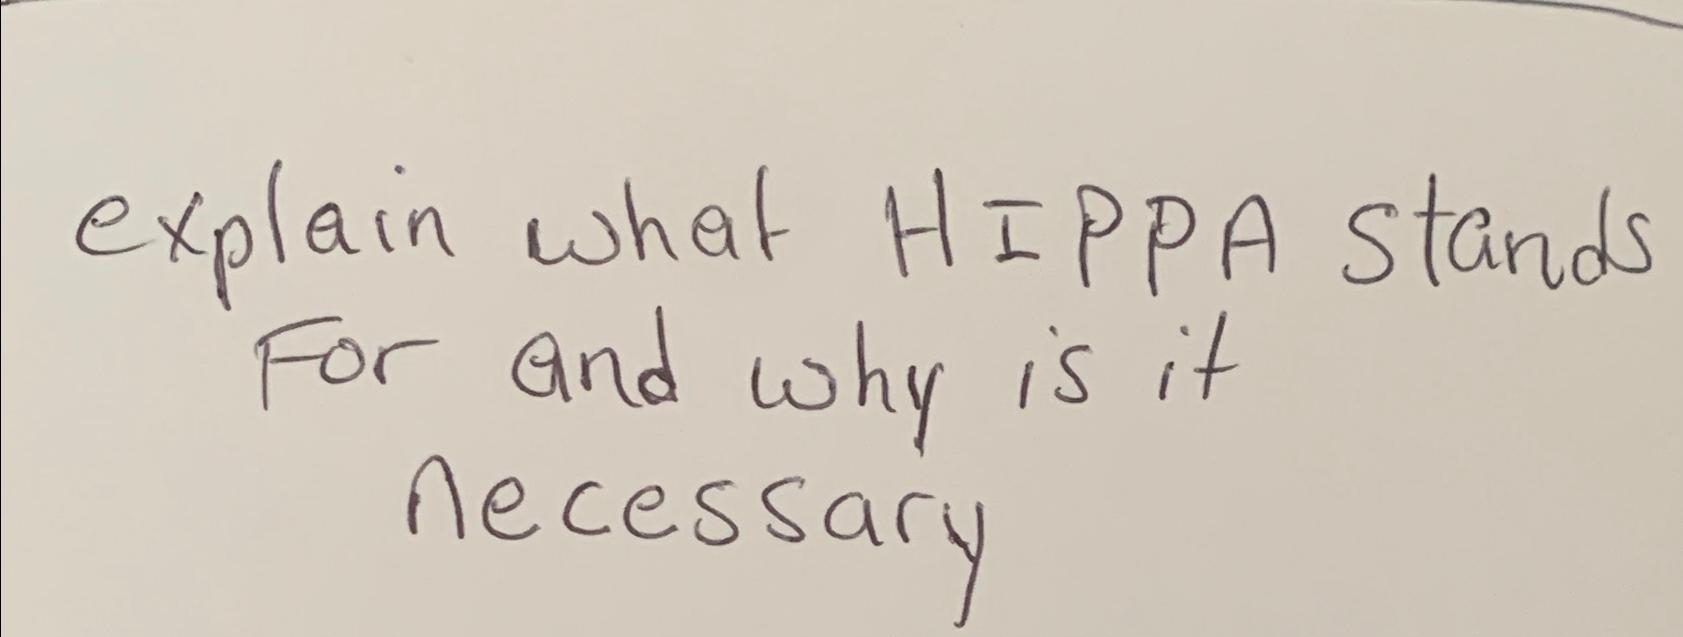 explain what HIPPA stands
For and why is it
necessary